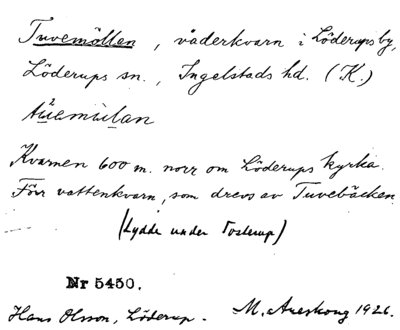 Tuvemöllen, väderkvarn i Löderups by,
Löderups sn., Ingelstads hd. (K.)
Kvarnen 600 m. norr om Löderups kyrka.
Förr vattenkvarn, som drevs av Tuvebäcken
(Lydde under Tosterup)
Nr 5450.
Hans Olsson, Löderup. - M. Areskoug 1926.